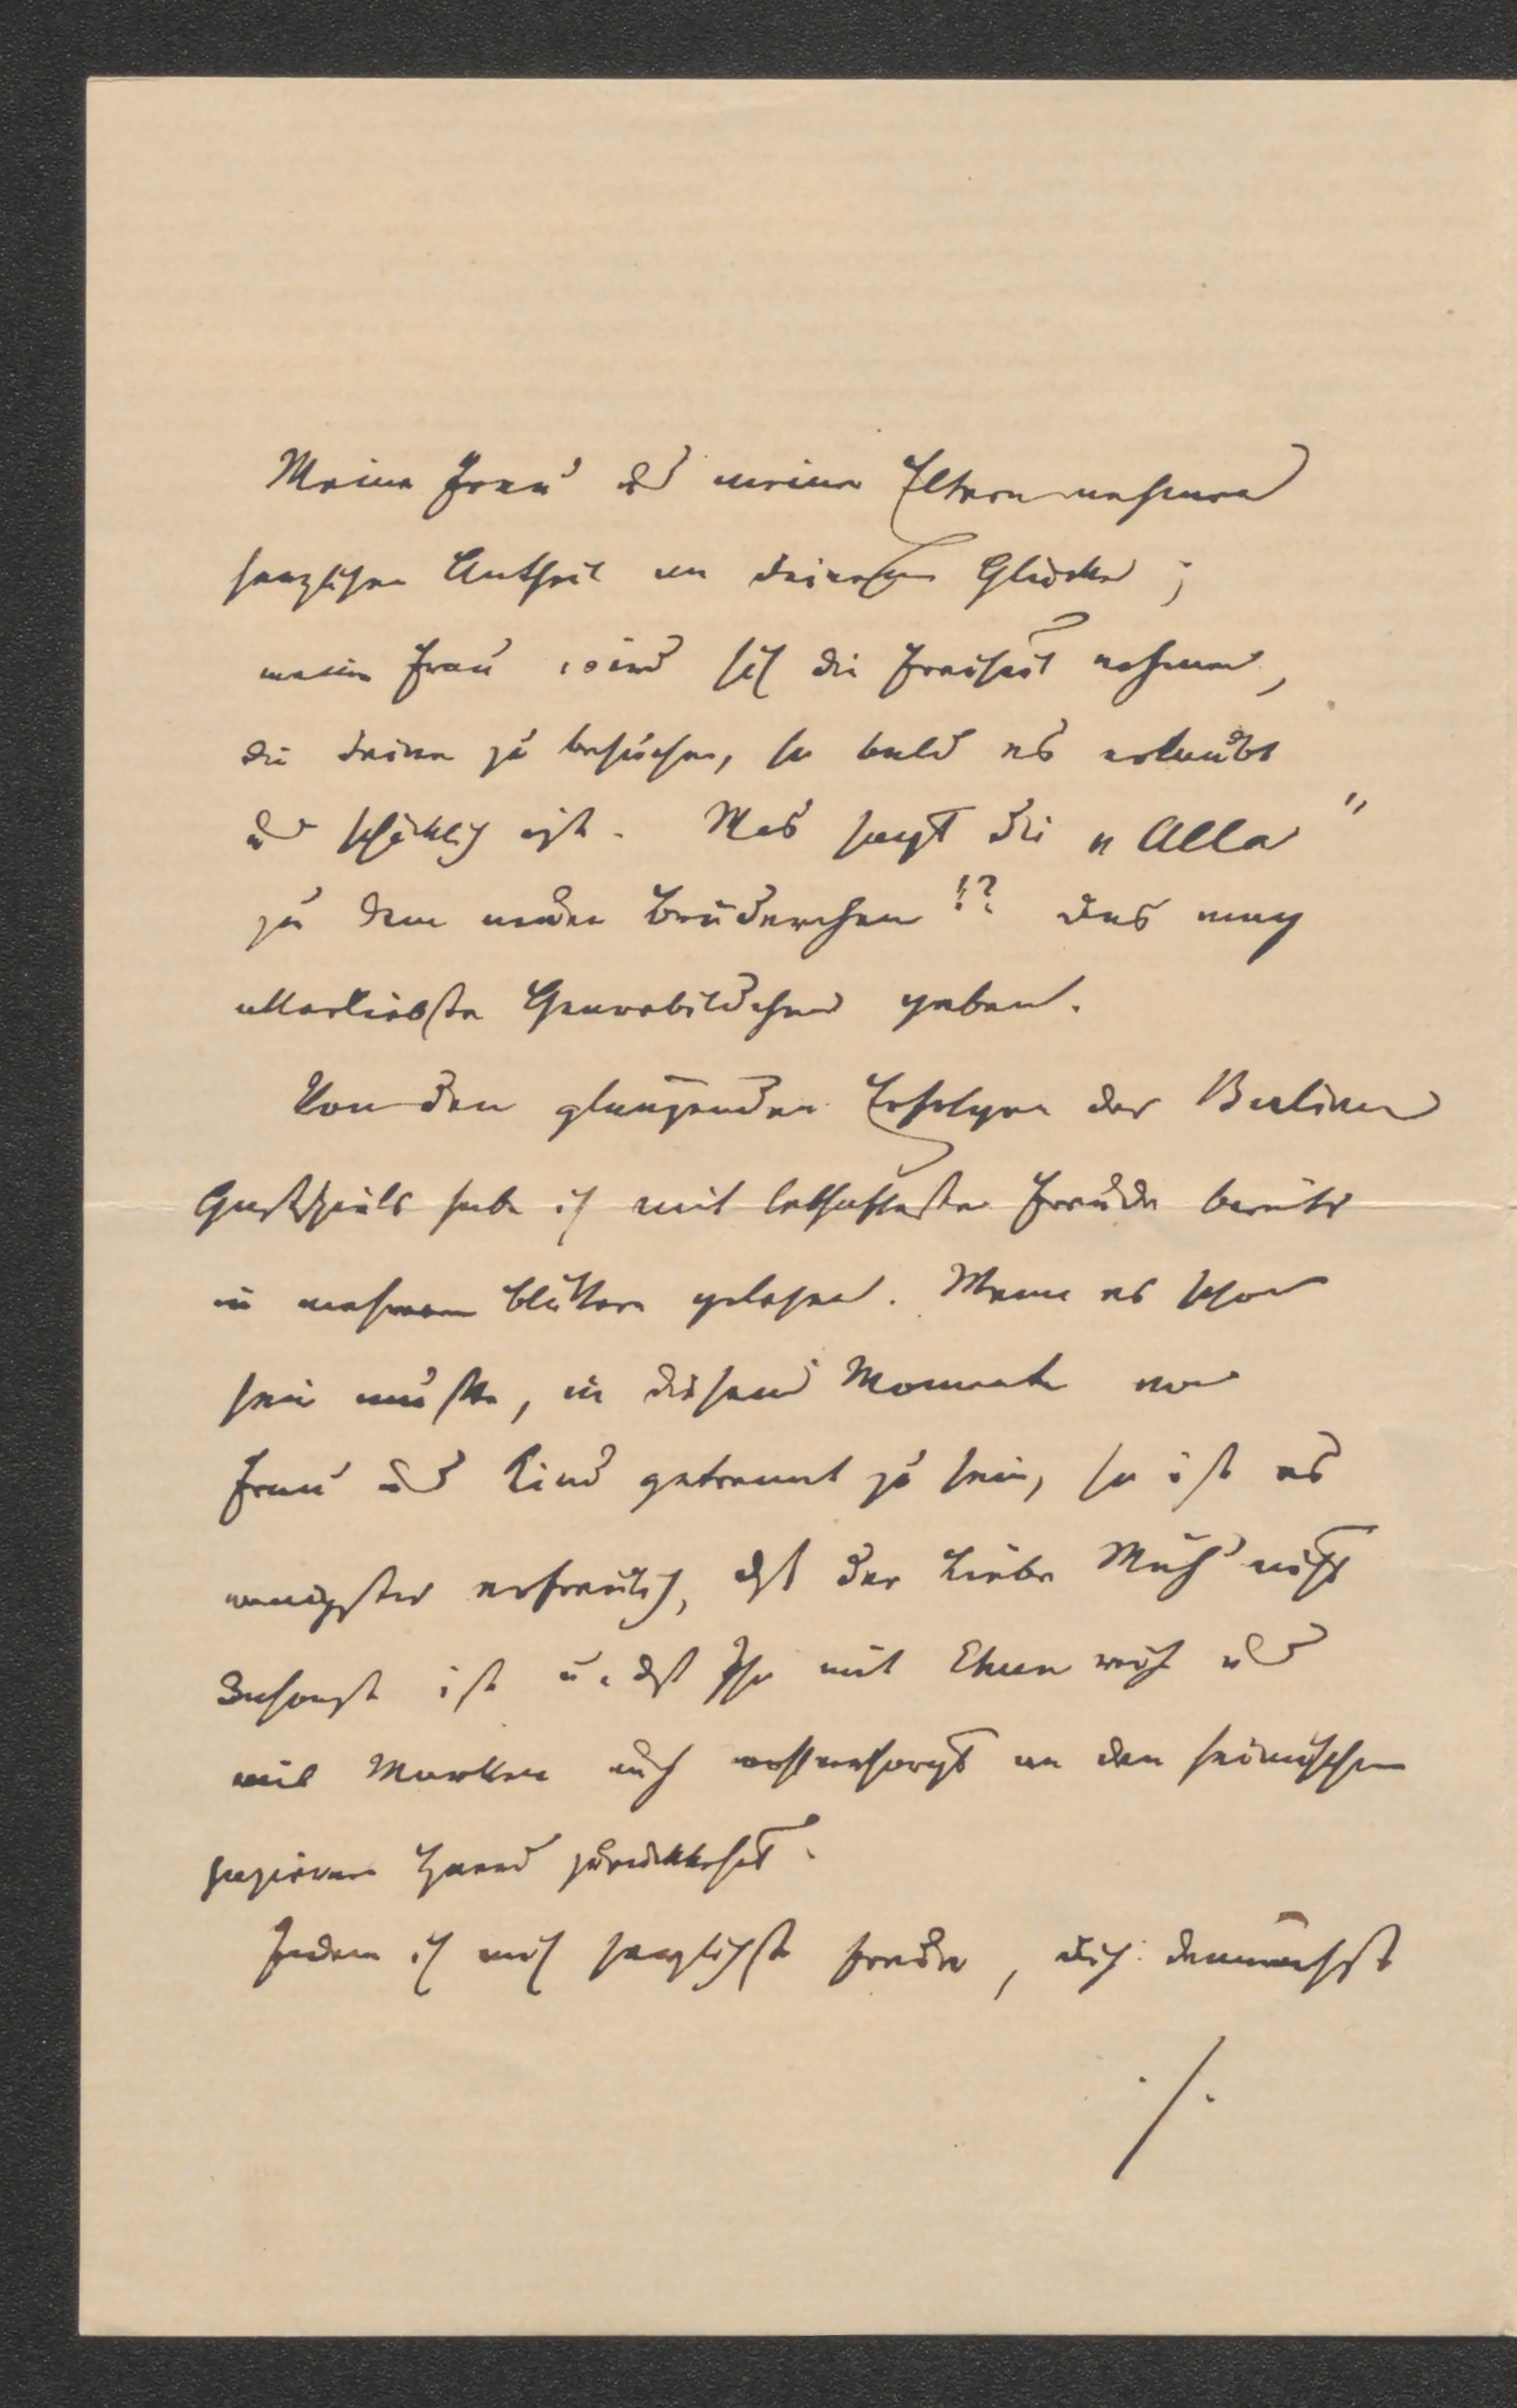 Meine Frau und meine Eltern nehmen
herzlichen Antheil an Deinem Glücke;
meine Frau wird sich die Freiheit nehmen,
die Deine zu besuchen, so bald es erlaubt
und schicklich ist. Was sagt die „Alla"
zu dem neuen Brüderchen!? Das mag
allerliebste Genrebildchen geben.
Von den glänzenden Erfolgen des Berliner
Gastspiels habe ich mit lebhaftester Freude bereits
in mehreren Blättern gelesen. Wenn es schon
sein mußte, in diesem Momente von
Frau und Kind getrennt zu sein, so ist es
wenigstens erfreulich, daß der Liebe Müh' nicht
umsonst ist u. daß Ihr mit Ehren reich und
mit Marken auch wohlversorgt an den heimischen
Herd zurückkehrt.
Indem ich mich herzlichst freue, Dich demnächst
./.